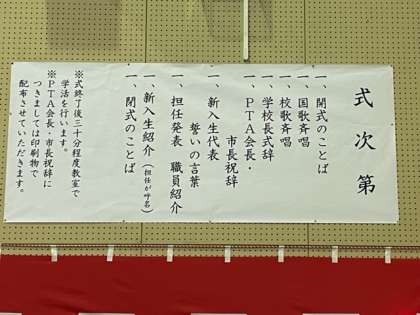 式次第
一、開式のことば
一、国歌斉唱
一、校歌斉唱
一、学校長式辞
一、PTA会長・
市長祝辞
一、新入生代表
誓いの言葉
一、担任発表 職員紹介
一、新入生紹介(担任が呼名)
一、閉式のことば
※式終了後三十分程度教室で
学活を行います。
※PTA会長・市長祝辞に
つきましては印刷物で
配布させていただきます。